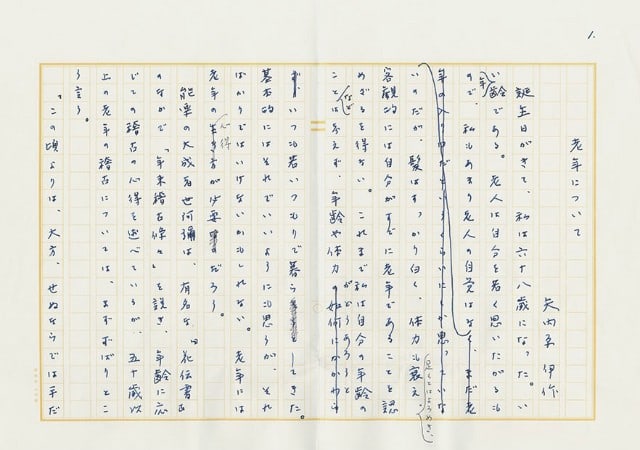 1.
老年について
矢内原伊作
誕生日がきて、私は六十八歳になった。い
い年齢である。老人は自分を若く思いたがるも
ので、私もあまり老人の自覚はなく、まだ老
年の入り口だというくらいにしか思っていな
いのだが、髪はすっかり白く、体力も衰え、
足もとはよろめき、
客観的には自分がすでに老年であることを認
めざるを得ない。これまで私は自分の年齢の
ことなど考えず、年齢や体力がどうあろうと
の如何にかかわら
ず、いつも若いつもりで暮らしてきた。
基本的にはそれでいいようにも思うが、それ
ばかりではいけないかもしれない。老年には
老年の心得が必要だろう。
生き方
能楽の大成者世阿彌は、有名な『花伝書』
のなかで、「年来稽古條々」を説き、年齢に応
じての稽古の心得を述べているが、五十歳以
上の老年の稽古については、まずずばりとこ
う言う。
「この頃よりは、大方、せぬならでは手だ